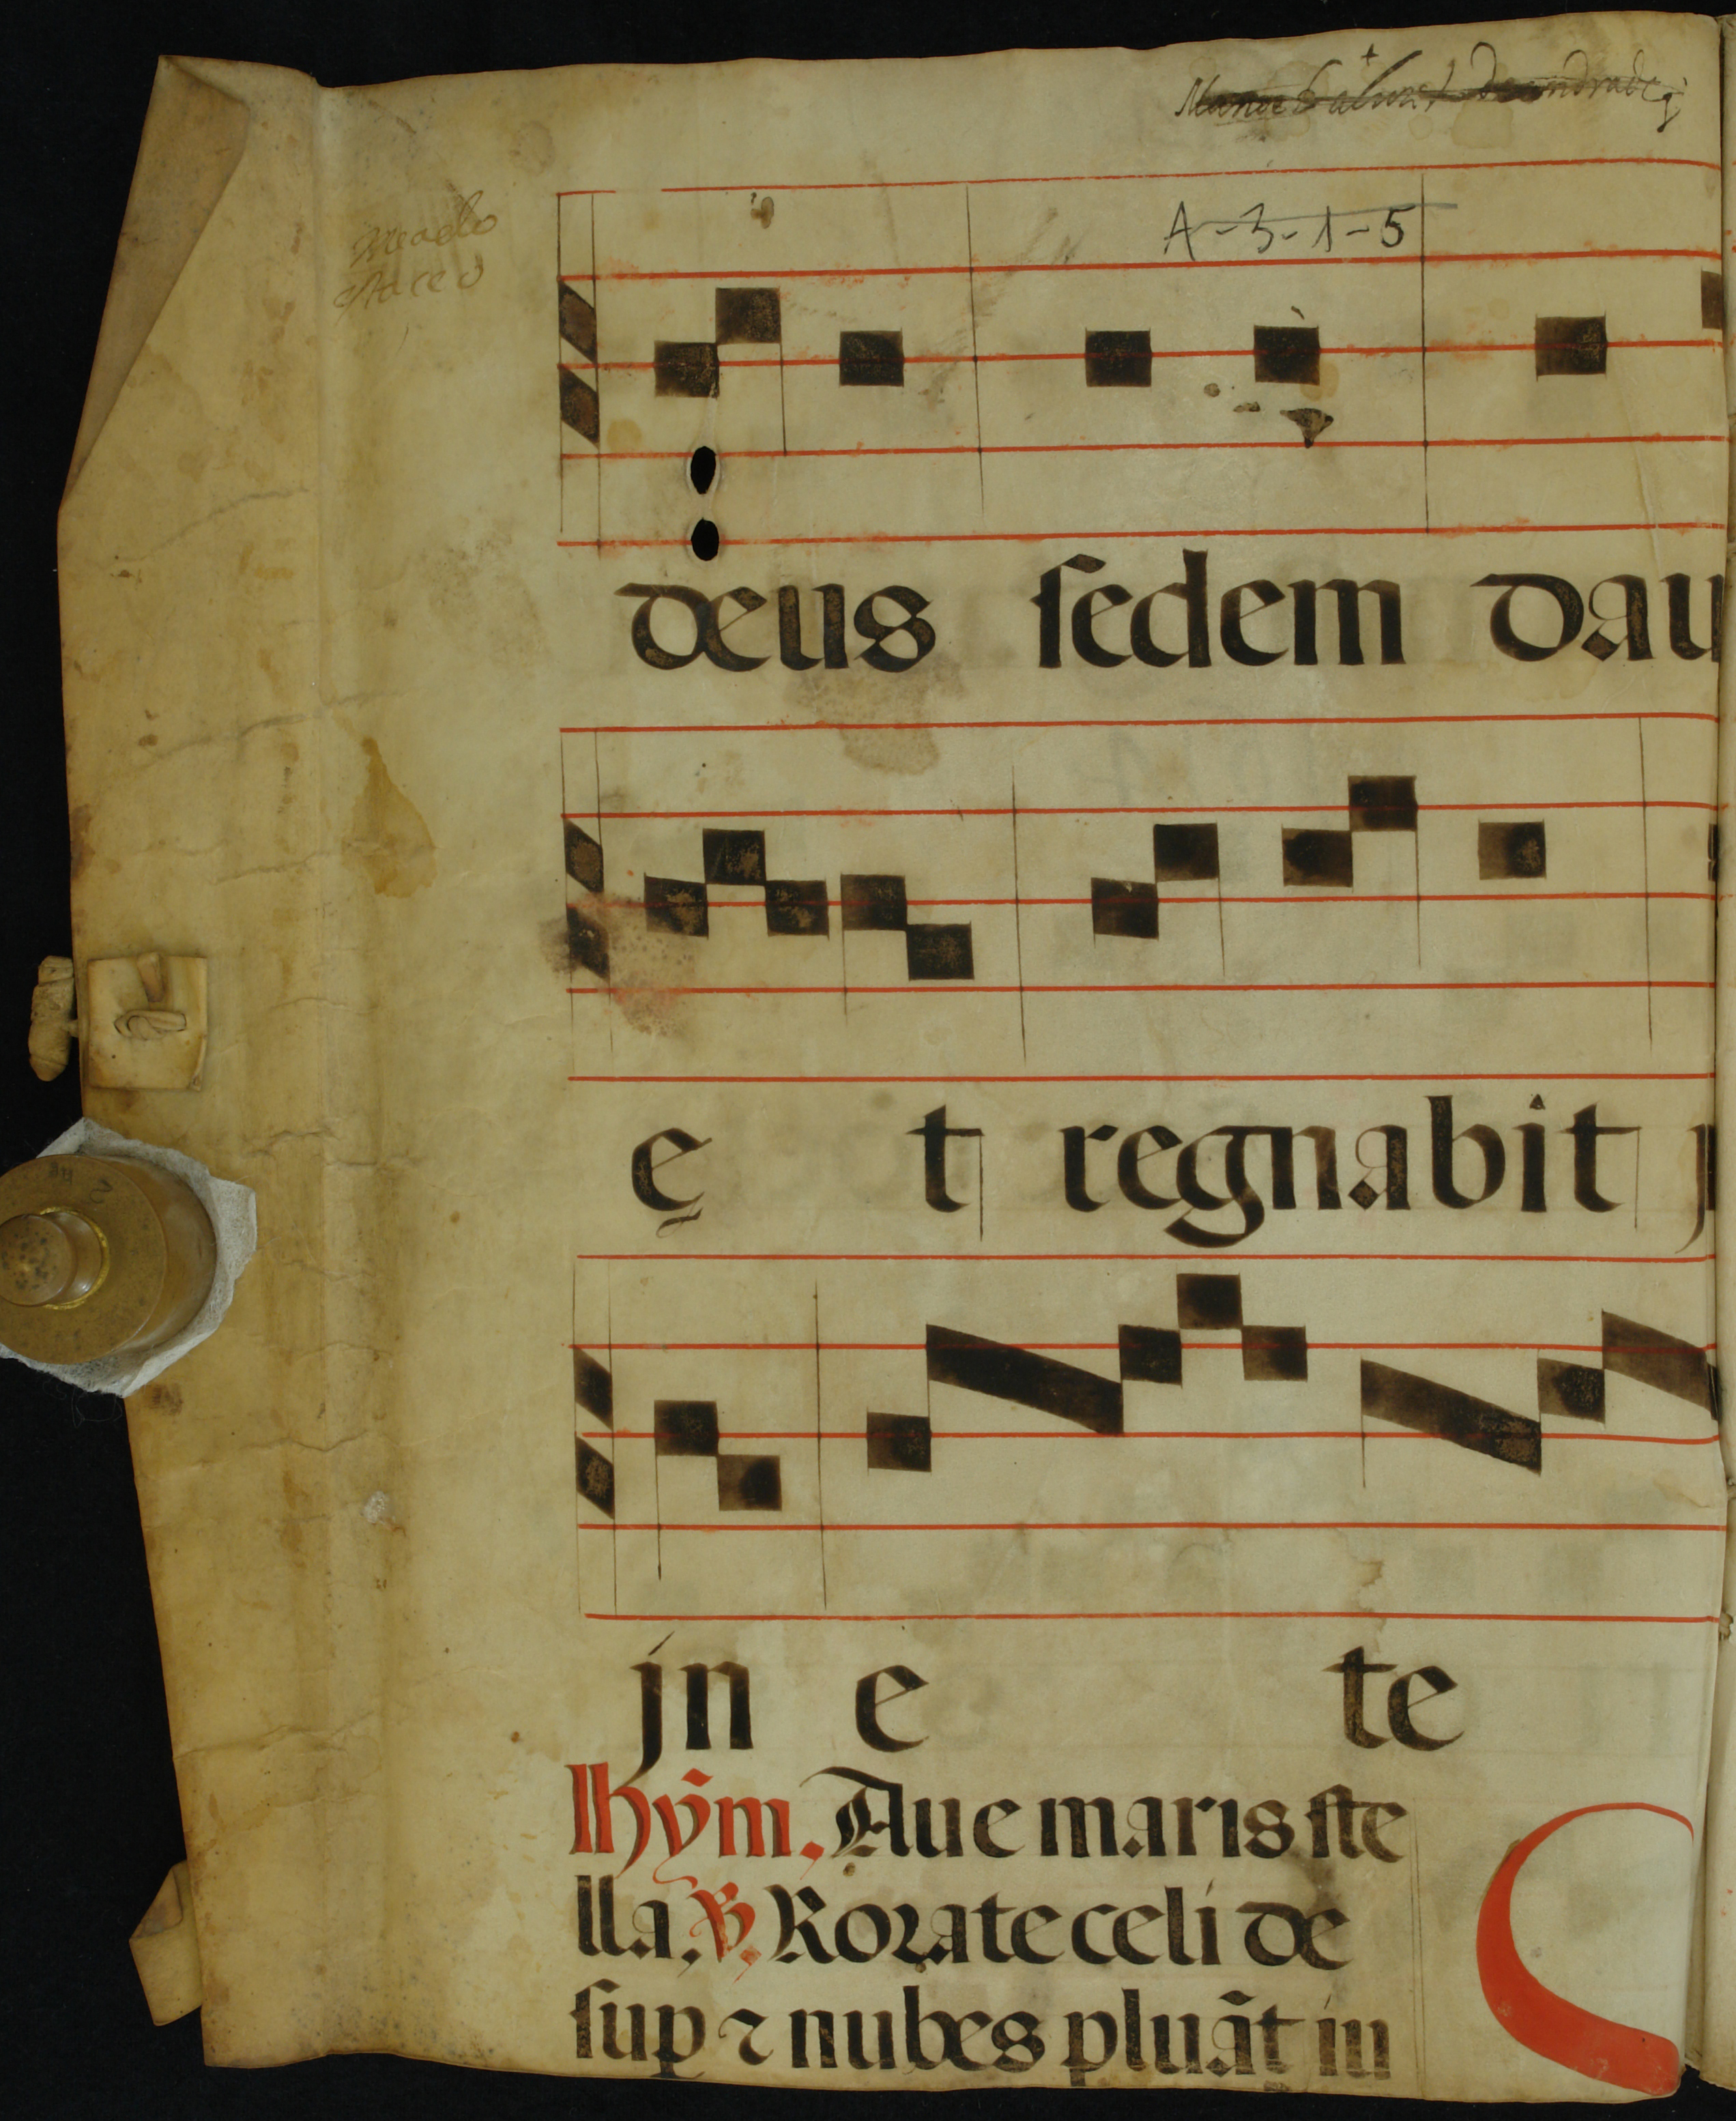 A-3-1-5
deus sedem dau
et regnabit
jn e te
hỹm. Aue maris ste
lla. ℣. Rorate celi de
sup ⁊ nubes pluãt iu